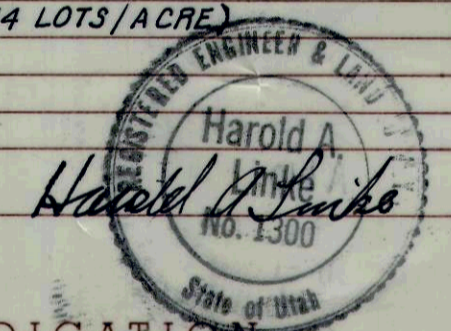 4 LOTS/ACRE)
REGISTERED ENGINEER & LAND
Harold A.
Linke
No. 1300
State of Utah
Harold A Linke
DICATION